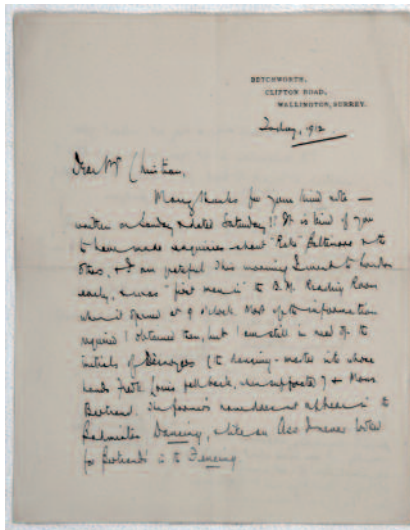 BETCHWORTH,
CLIFTON ROAD,
WALLINGTON, SURREY.
Tuesday, 1912
Dear Mr Christian,
Many thanks for your kind note —
written on Sunday & dated Saturday!! It is kind of you
to have made enquiries about "Pete" Baltimore & the
others, & I am grateful. This morning I went to London
early, & was "first man in" to B.M. Reading Room
when it opened at 9 o'clock. Most of the information
required I obtained there, but I am still in need of the
initials of (the dancing-master into whose
hands Louis fell back, when supported) & Mons.
Bertrand. The former's name does not appear in the
Badminton Dancing, while an Ass I never looked
for Bertrand's in the Fencing